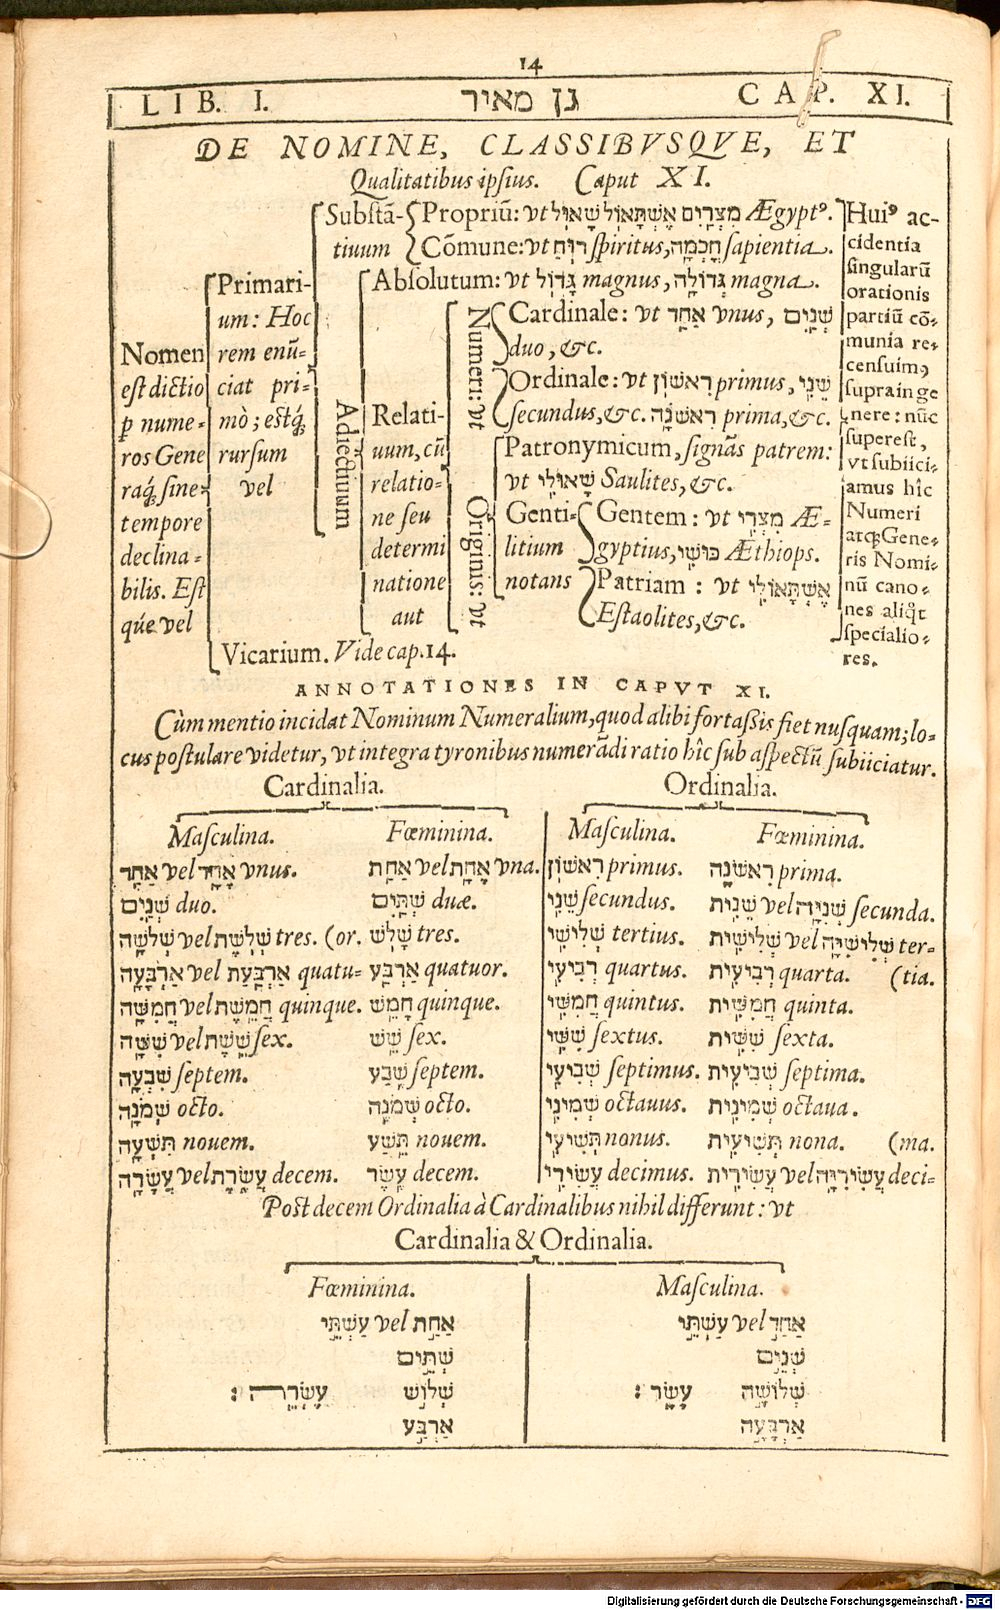 14
LIB. I. גן מאיר CAP. XI.
DE NOMINE, CLASSIBVSQVE, ET
Qualitatibus ipsius. Caput XI.
Nomen
est dictio
ꝑ nume-
ros Gene
raq́; sine
tempore
declina-
bilis. Est
q́ue vel
Primari-
um: Hoc
rem enũ-
ciat pri-
mò; estq́;
rursum
vel
Vicarium. Vide cap. 14.
Substã-
tiuum
Propriũ: vt שָׁאוּל אֶשְׁתָּאוֹל מִצְרַיִם Ægyptꝰ.
Cõmune: vt רוּחַ spiritus, חָכְמָה sapientia.
Adiectiuum
Absolutum: vt גָּדוֹל magnus, גְּדוֹלָה magna.
Relati-
uum, cũ
relatio-
ne seu
determi
natione
aut
Numeri: vt
Cardinale: vt אֶחָד vnus, שְׁנַיִם
duo, &c.
Ordinale: vt רִאשׁוֹן primus, שֵׁנִי
secundus, &c. רִאשֹׁנָה prima, &c.
Originis: vt
Patronymicum, signãs patrem:
vt שָׁאוּלִי Saulites, &c.
Genti-
litium
notans
Gentem: vt מִצְרִי Æ-
gyptius, כּוּשִׁי Æthiops.
Patriam: vt אֶשְׁתָּאוֹלִי
Estaolites, &c.
Huiꝰ ac-
cidentia
singularũ
orationis
partiũ cõ-
munia re-
censuim9
supra in ge
nere: nũc
superest,
vt subiici-
amus hîc
Numeri
atq; Gene-
ris Nomi-
nũ cano-
nes aliq̃t
specialio-
res.
ANNOTATIONES IN CAPVT XI.
Cùm mentio incidat Nominum Numeralium, quod alibi fortassis fiet nusquam; lo-
cus postulare videtur, vt integra tyronibus numerãdi ratio hîc sub aspectũ subiiciatur.
Cardinalia. Ordinalia.
Masculina. Fœminina. Masculina. Fœminina.
אֶחָד vel אַחַד vnus. אַחַת vel אֶחָת vna. רִאשׁוֹן primus. רִאשֹׁנָה prima.
שְׁנַיִם duo. שְׁתַּיִם duæ. שֵׁנִי secundus. שֵׁנִית vel שְׁנִיָּה secunda.
שְׁלֹשָׁה vel שְׁלֹשֶׁת tres. (or. שָׁלֹשׁ tres. שְׁלִישִׁי tertius. שְׁלִישִׁית vel שְׁלִישִׁיָּה ter-
אַרְבָּעָה vel אַרְבַּעַת quatu- אַרְבַּע quatuor. רְבִיעִי quartus. רְבִיעִית quarta. (tia.
חֲמִשָּׁה vel חֲמֵשֶׁת quinque. חָמֵשׁ quinque. חֲמִשִּׁי quintus. חֲמִשִּׁית quinta.
שִׁשָּׁה vel שֵׁשֶׁת sex. שֵׁשׁ sex. שִׁשִּׁי sextus. שִׁשִּׁית sexta.
שִׁבְעָה septem. שֶׁבַע septem. שְׁבִיעִי septimus. שְׁבִיעִית septima.
שְׁמֹנָה octo. שְׁמֹנֶה octo. שְׁמִינִי octauus. שְׁמִינִית octaua.
תִּשְׁעָה nouem. תֵּשַׁע nouem. תְּשִׁיעִי nonus. תְּשִׁיעִית nona. (ma.
עֲשָׂרָה vel עֲשֶׂרֶת decem. עֶשֶׂר decem. עֲשִׂירִי decimus. עֲשִׂירִית vel עֲשִׂירִיָּה deci-
Post decem Ordinalia à Cardinalibus nihil differunt: vt
Cardinalia & Ordinalia.
Fœminina. Masculina.
אַחַת vel עַשְׁתֵּי אַחַד vel עַשְׁתֵּי
שְׁתֵּים שְׁנֵים
שְׁלוֹשׁ עֶשְׂרֵה : שְׁלוֹשָׁה עָשָׂר :
אַרְבַּע אַרְבָּעָה
Digitalisierung gefördert durch die Deutsche Forschungsgemeinschaft - DFG